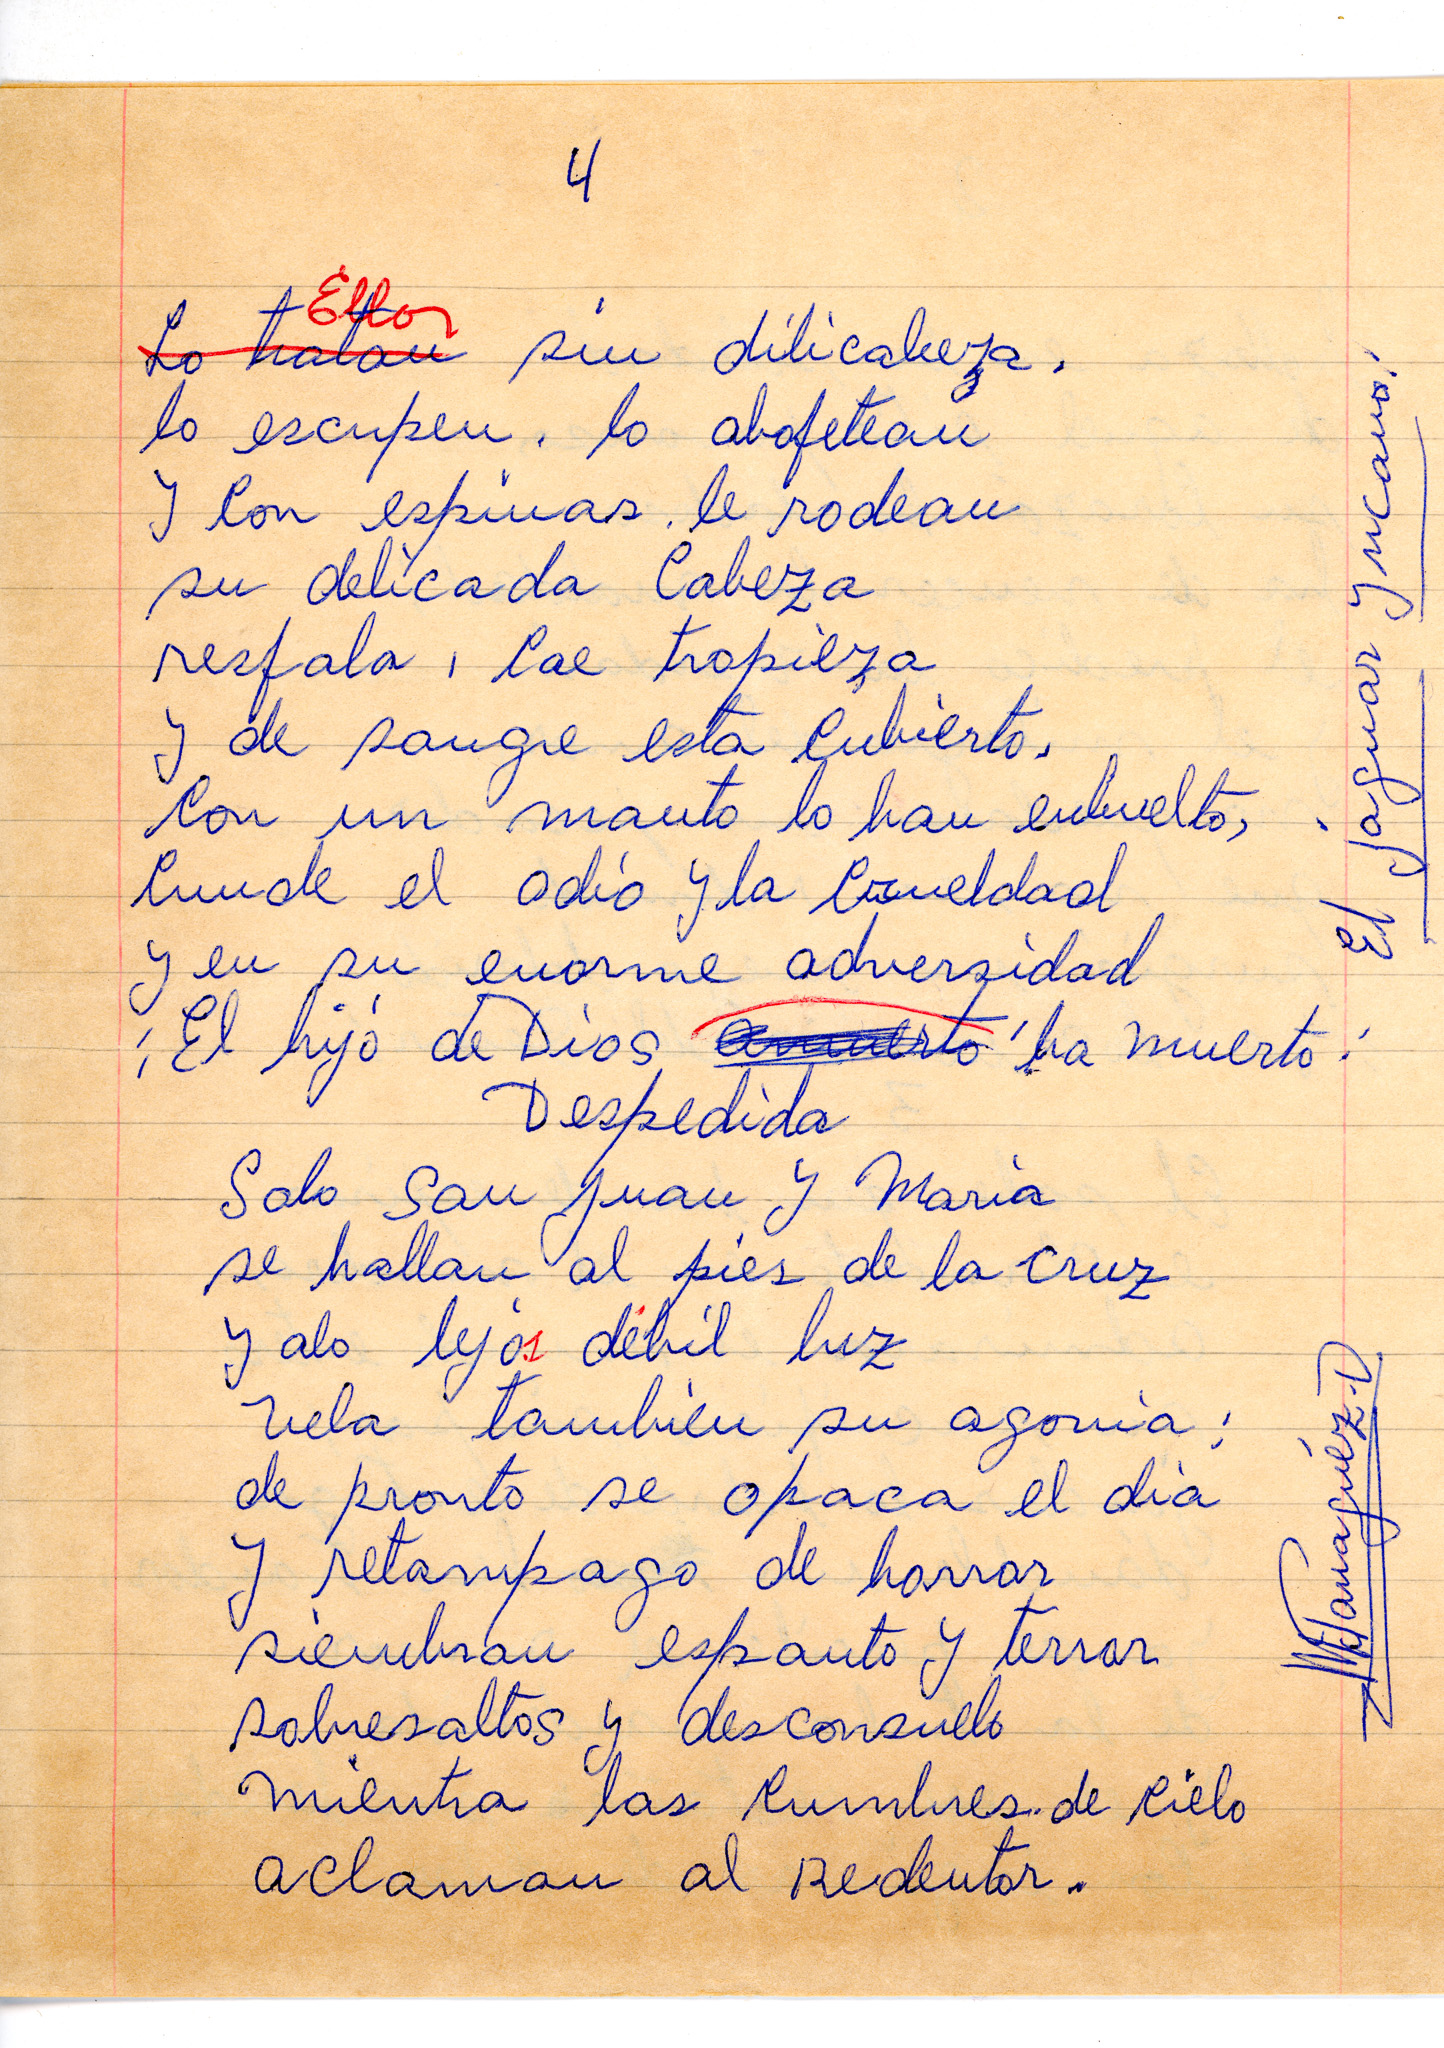 4
Ellos
Lo tratan sin dilicabeza.
lo escupen. lo abofetean
y con espinas. le rodean
su delicada Cabeza
resfala, Cae tropieza
y de sangre esta Cubierto.
Con un manto lo han enbuelto,
Cunde el odio y la Crueldad
y en su enorme adversidad
¡El hijo de Dios amuerto ha muerto!
Despedida
Solo San Juan y Maria
se hallan al pies de la cruz
y alo lejos débil luz
vela tambien su agonia;
de pronto se opaca el dia
y retampago de horror
siembran espanto y terror
sobresaltos y desconsuelo
mientra las Cumbres. de Cielo
aclaman al Redentor.
El Jaguar Yncano!